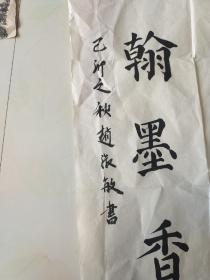 翰墨香
己卯之秋趙淑敏書